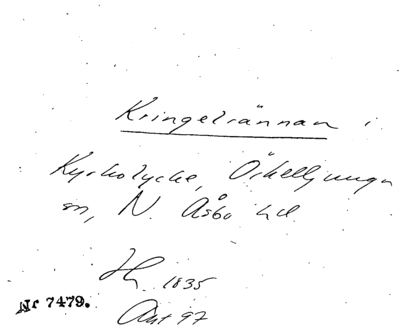 Kringelrännan i
Kyrkolycke, Örkelljunga
sn, N. Åsbo hd
1835
Nr 7479.
Ant 97